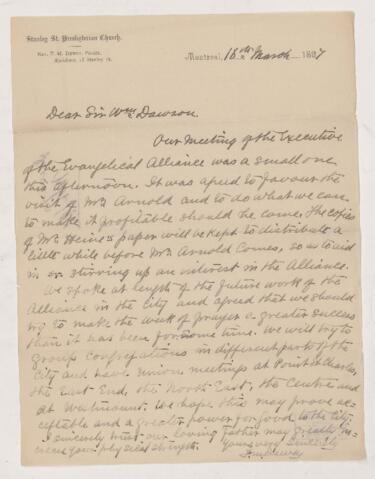 Stanley St. Presbyterian Church.
Rev. F. M. Dewey, Pastor.
Residence, Stanley St.
Montreal, 16th March 1897
Dear Sir Wm Dawson.
Our meeting of the Executive
of the Evangelical Alliance was a small one
this afternoon. It was agreed to favour the
visit of Mr Arnold and to do what we can
to make it profitable should he come. The copies
of Mr Heine's paper will be kept to distribute a
little while before Mr Arnold comes, so as to aid
in stirring up an interest in the Alliance.
We spoke at length of the future work of the
Alliance in the city and agreed that we should
try to make the week of prayer a greater success
than it has been for some time. We will try to
group congregations in different parts of the
City and have union meetings at Point St Charles,
the East End, the North East, the Centre and
at Westmount. We hope this may prove ac-
ceptable and a greater power for good to the City.
I sincerely trust our loving Father may greatly in-
crease your physical strength.
Yours very sincerely
F. M. Dewey